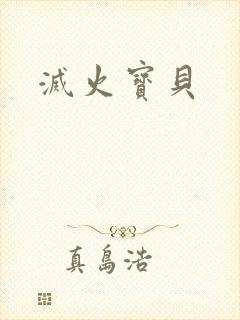 滅火寶貝
真島浩